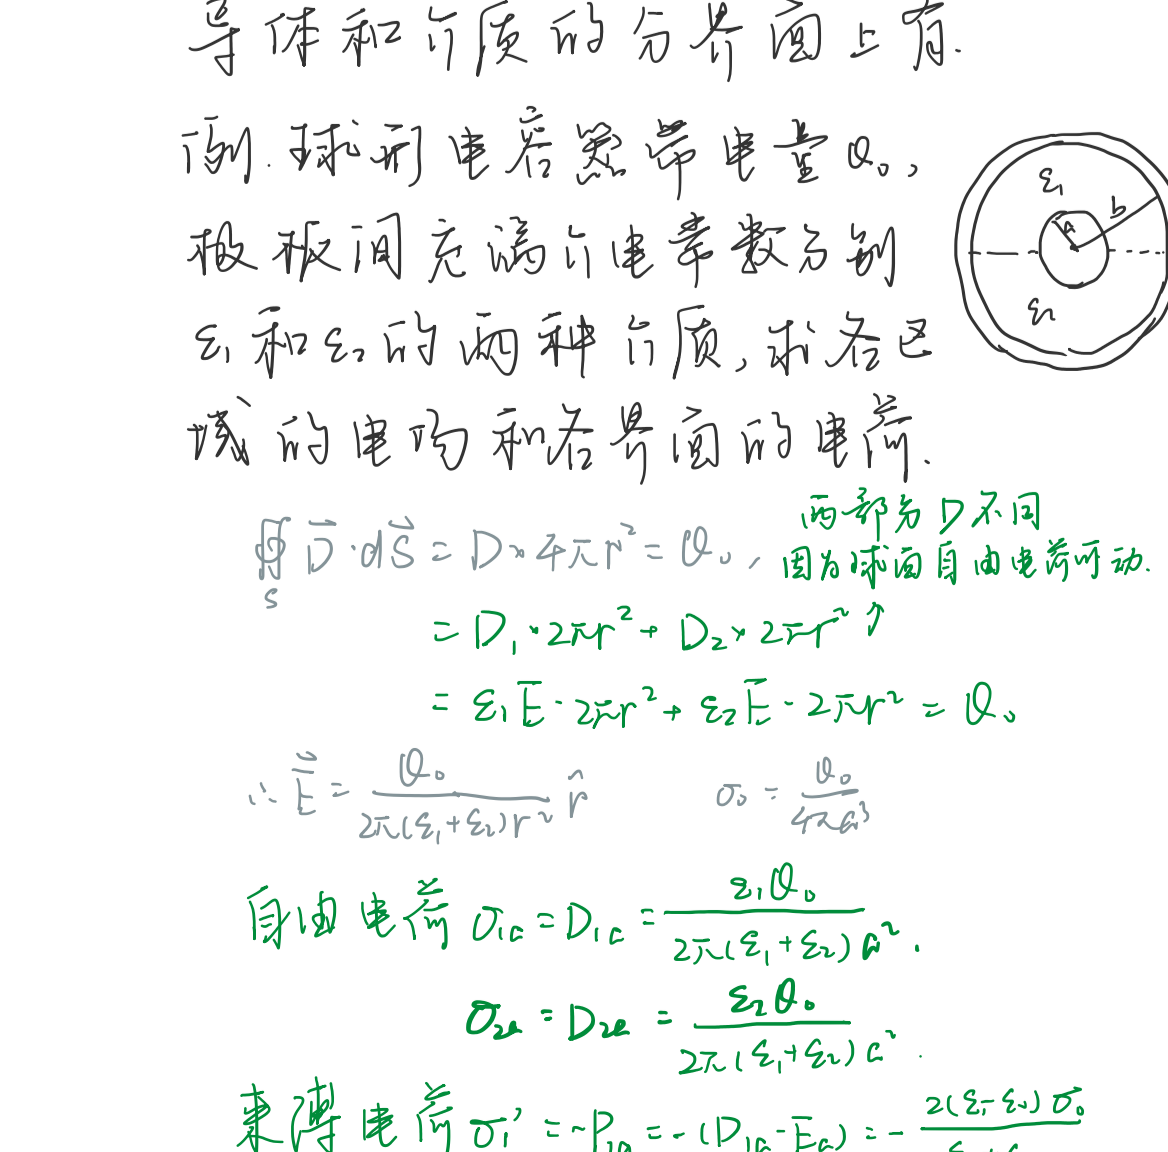 导体和介质的分界面上有.
例.球形电容器带电量Q₀,
极板间充满介电常数分别
ε₁和ε₂的两种介质,求各区
域的电场和各界面的电荷.
ε₁
a
b
ε₂
∯_S D⃗·dS⃗ = D×4πr² = Q₀,
两部分D不同
因为球面自由电荷可动.
= D₁×2πr² + D₂×2πr² ↗
= ε₁E·2πr² + ε₂E·2πr² = Q₀
∴ E⃗ = Q₀/(2π(ε₁+ε₂)r²) r̂ σ₀ = Q₀/(4πa³)
自由电荷 σ₁ₐ = D₁ₐ = ε₁Q₀/(2π(ε₁+ε₂)a²).
σ₂ₐ = D₂ₐ = ε₂Q₀/(2π(ε₁+ε₂)a²).
束缚电荷 σ₁' = -P₁ₐ = -(D₁ₐ-Eₐ) = - 2(ε₁-ε₀)σ₀